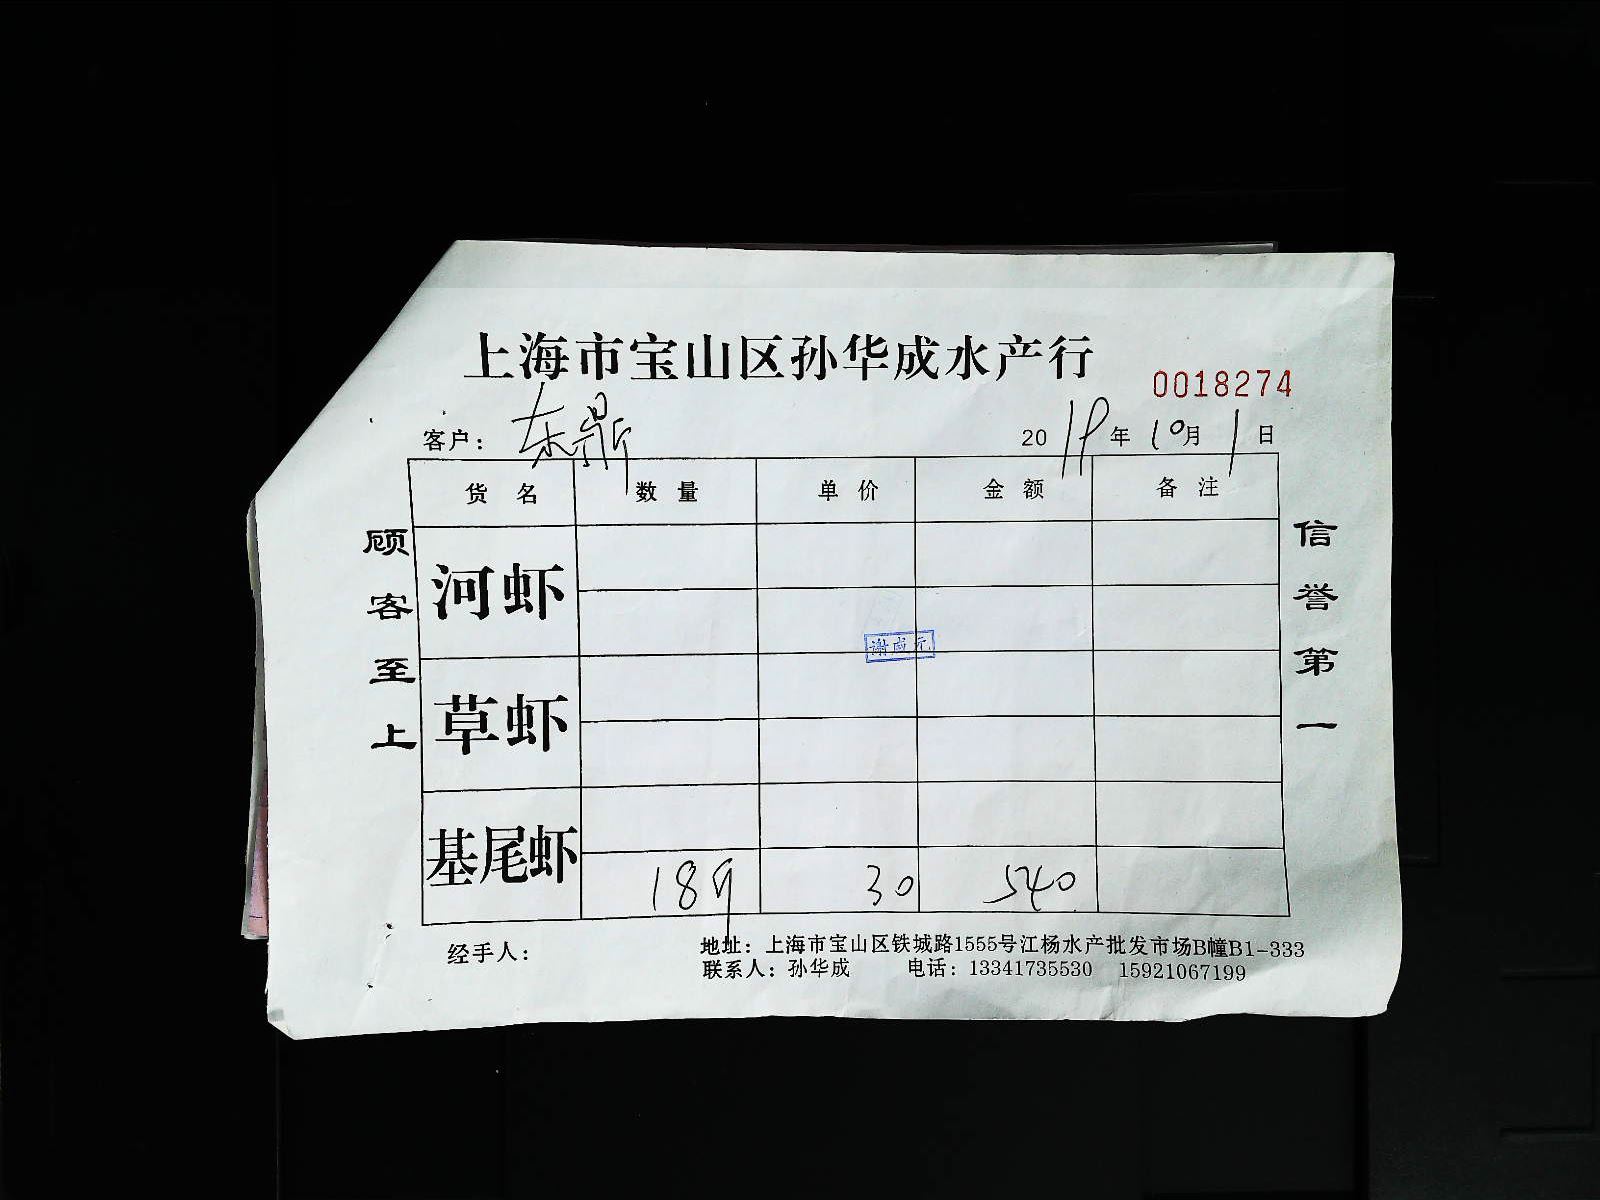 上海市宝山区孙华成水产行
0018274
客户: 东鼎 2019年10月1日
货名 数量 单价 金额 备注
河虾
草虾
基尾虾
18斤 30 540
顾客至上
信誉第一
谢成元
经手人:
地址: 上海市宝山区铁城路1555号江杨水产批发市场B幢B1-333
联系人: 孙华成 电话: 13341735530 15921067199